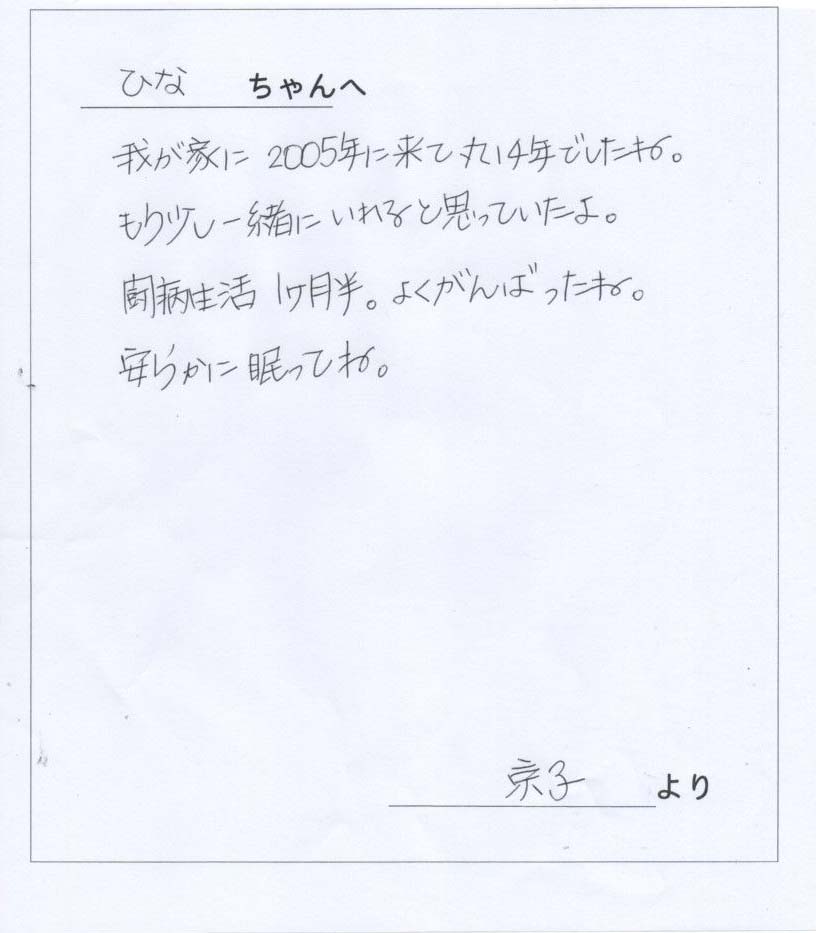 ひな ちゃんへ
我が家に 2005年に来て丸14年でしたね。
もう少し一緒にいれると思っていたよ。
闘病生活 1ヶ月半。よくがんばったね。
安らかに眠ってね。
京子 より